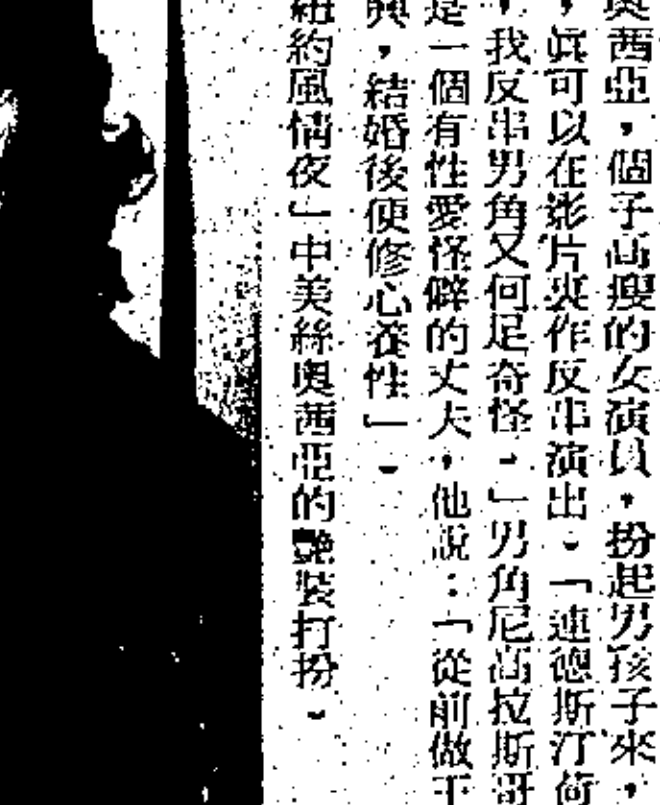 奧茜亞，個子高瘦的女演員，扮起男孩子來，
，眞可以在影片裏作反串演出。「連德斯汀荷
，我反串男角又何足奇怪。」男角尼高拉斯哥
是一個有性愛怪僻的丈夫，他說：「從前做王
興，結婚後便修心養性」。
紐約風情夜」中美絲奧茜亞的艷裝打扮。